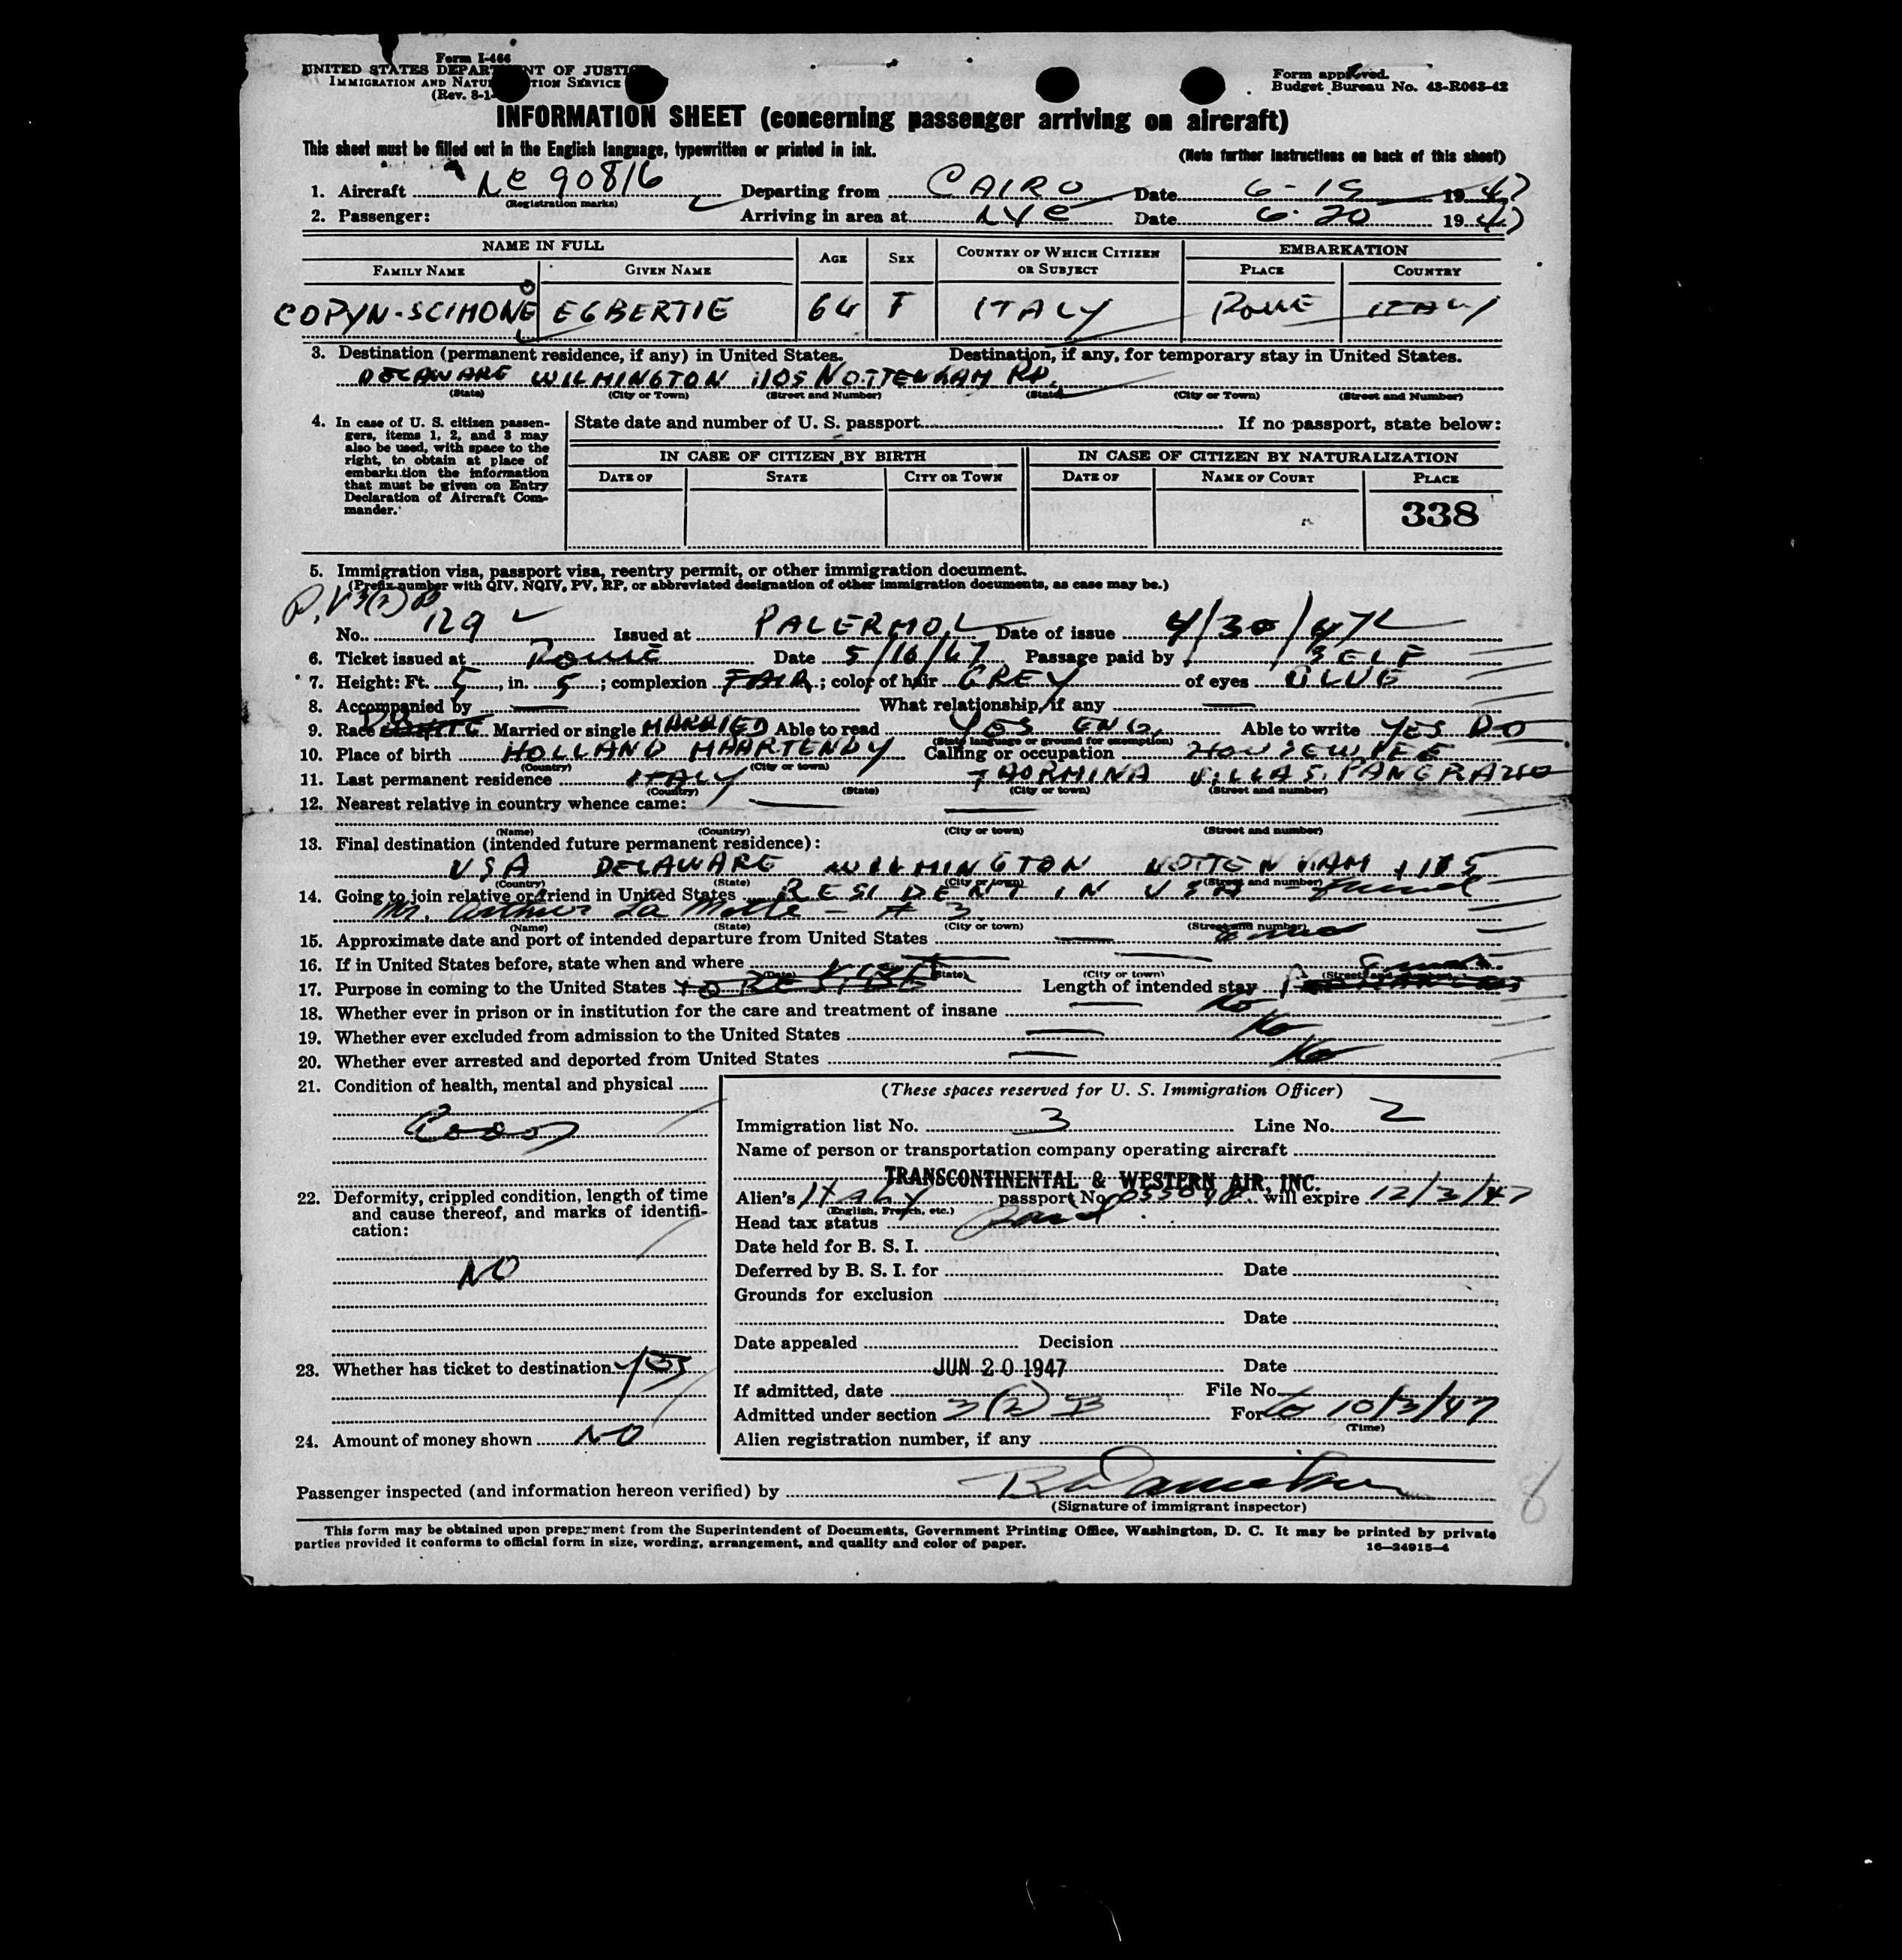 Form I-466
UNITED STATES DEPARTMENT OF JUSTICE
IMMIGRATION AND NATURALIZATION SERVICE
(Rev. 8-1-
Form approved.
Budget Bureau No. 43-R063-42
INFORMATION SHEET (concerning passenger arriving on aircraft)
This sheet must be filled out in the English language, typewritten or printed in ink.
(Note further instructions on back of this sheet)
1. Aircraft NC 90816 Departing from CAIRO Date 6-19 1947
(Registration marks)
2. Passenger: Arriving in area at NYC Date 6-20 1947
NAME IN FULL AGE SEX COUNTRY OF WHICH CITIZEN OR SUBJECT EMBARKATION
FAMILY NAME GIVEN NAME PLACE COUNTRY
COPYN-SCIMONE EGBERTIE 64 F ITALY ROME ITALY
3. Destination (permanent residence, if any) in United States. Destination, if any, for temporary stay in United States.
DELAWARE WILMINGTON 1105 NOTTENHAM RD.
(State) (City or Town) (Street and Number) (State) (City or Town) (Street and Number)
4. In case of U. S. citizen passen-
gers, items 1, 2, and 3 may
also be used, with space to the
right, to obtain at place of
embarkation the information
that must be given on Entry
Declaration of Aircraft Com-
mander.
State date and number of U. S. passport If no passport, state below:
IN CASE OF CITIZEN BY BIRTH IN CASE OF CITIZEN BY NATURALIZATION
DATE OF STATE CITY OR TOWN DATE OF NAME OF COURT PLACE
338
5. Immigration visa, passport visa, reentry permit, or other immigration document.
(Prefix number with QIV, NQIV, PV, RP, or abbreviated designation of other immigration documents, as case may be.)
P.V 3(2) B
No. 129 Issued at PALERMO Date of issue 4/30/47
6. Ticket issued at Rome Date 5/16/47 Passage paid by SELF
7. Height: Ft. 5, in. 5; complexion FAIR; color of hair GREY of eyes BLUE
8. Accompanied by What relationship, if any
9. Race Married or single MARRIED Able to read YES ENG. Able to write YES DO
(State language or ground for exemption)
10. Place of birth HOLLAND MAARTENDY Calling or occupation HOUSEWIFE
(Country) (City or town)
11. Last permanent residence ITALY TAORMINA VILLA S. PANCRAZIO
(Country) (State) (City or town) (Street and number)
12. Nearest relative in country whence came:
(Name) (Country) (City or town) (Street and number)
13. Final destination (intended future permanent residence):
USA DELAWARE WILMINGTON NOTTENHAM 1105
(Country) (State) (City or town) (Street and number)
14. Going to join relative or friend in United States RESIDENT IN USA - friend
Mr. Arthur La Motte - # 3
(Name) (State) (City or town) (Street and number)
15. Approximate date and port of intended departure from United States
16. If in United States before, state when and where
(Date) (State) (City or town) (Street and number)
17. Purpose in coming to the United States TO RESIDE Length of intended stay
18. Whether ever in prison or in institution for the care and treatment of insane No
19. Whether ever excluded from admission to the United States No
20. Whether ever arrested and deported from United States No
21. Condition of health, mental and physical
Good
22. Deformity, crippled condition, length of time
and cause thereof, and marks of identifi-
cation:
NO
23. Whether has ticket to destination YES
24. Amount of money shown NO
(These spaces reserved for U. S. Immigration Officer)
Immigration list No. 3 Line No. 2
Name of person or transportation company operating aircraft
TRANSCONTINENTAL & WESTERN AIR, INC.
Alien's Italy passport No. will expire 12/3/47
(English, French, etc.)
Head tax status Paid
Date held for B. S. I.
Deferred by B. S. I. for Date
Grounds for exclusion
Date
Date appealed Decision
JUN 20 1947 Date
If admitted, date File No.
Admitted under section 3(2) B For to 10/3/47
(Time)
Alien registration number, if any
Passenger inspected (and information hereon verified) by
(Signature of immigrant inspector)
6
This form may be obtained upon prepayment from the Superintendent of Documents, Government Printing Office, Washington, D. C. It may be printed by private
parties provided it conforms to official form in size, wording, arrangement, and quality and color of paper.
16—24915-4